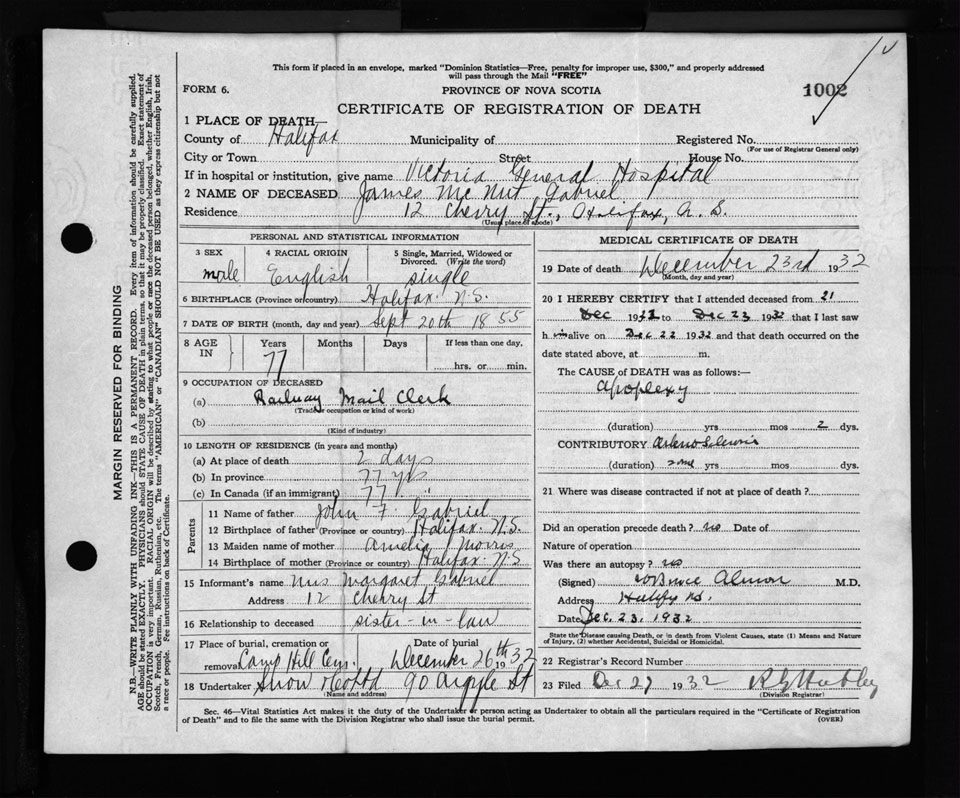 This form if placed in an envelope, marked "Dominion Statistics—Free, penalty for improper use, $300," and properly addressed
will pass through the Mail "FREE"
FORM 6. PROVINCE OF NOVA SCOTIA 1002
CERTIFICATE OF REGISTRATION OF DEATH
1 PLACE OF DEATH—
County of Halifax Municipality of Registered No.
(For use of Registrar General only)
City or Town Street House No.
If in hospital or institution, give name Victoria General Hospital
2 NAME OF DECEASED James Mc Nut Gabriel
Residence 12 Cherry St., Halifax, N. S.
(Usual place of abode)
PERSONAL AND STATISTICAL INFORMATION
3 SEX 4 RACIAL ORIGIN 5 Single, Married, Widowed or
Divorced. (Write the word)
male English single
6 BIRTHPLACE (Province or country) Halifax N.S.
7 DATE OF BIRTH (month, day and year) Sept 20th 1855
8 AGE IN Years Months Days If less than one day,
77 hrs. or min.
9 OCCUPATION OF DECEASED
(a) Railway Mail Clerk
(Trade or occupation or kind of work)
(b)
(Kind of industry)
10 LENGTH OF RESIDENCE (in years and months)
(a) At place of death 2 days
(b) In province 77 yrs
(c) In Canada (if an immigrant) 77 "
Parents
11 Name of father John F. Gabriel
12 Birthplace of father (Province or country) Halifax N.S.
13 Maiden name of mother Amelia Morris
14 Birthplace of mother (Province or country) Halifax N.S
15 Informant's name Mrs Margaret Gabriel
Address 12 Cherry St
16 Relationship to deceased sister-in-law
17 Place of burial, cremation or Date of burial
removal Camp Hill Cem. December 26th 1932
18 Undertaker Snow & Co Ltd 90 Argyle St
(Name and address)
MEDICAL CERTIFICATE OF DEATH
19 Date of death December 23rd 1932
(Month, day and year)
20 I HEREBY CERTIFY that I attended deceased from 21
Dec 1932 to Dec 23 1932 that I last saw
h im alive on Dec 22 1932 and that death occurred on the
date stated above, at m.
The CAUSE OF DEATH was as follows:—
Apoplexy
(duration) yrs mos 2 dys.
CONTRIBUTORY
(duration) yrs mos dys.
21 Where was disease contracted if not at place of death?
Did an operation precede death? no Date of
Nature of operation
Was there an autopsy? no
(Signed) W Bruce Almon M.D.
Address Halifax N.S.
Date Dec. 23, 1932
State the Disease causing Death, or in death from Violent Causes, state (1) Means and Nature
of Injury, (2) whether Accidental, Suicidal or Homicidal.
22 Registrar's Record Number
23 Filed Dec 27 1932
(Division Registrar)
Sec. 46—Vital Statistics Act makes it the duty of the Undertaker or person acting as Undertaker to obtain all the particulars required in the "Certificate of Registration
of Death" and to file the same with the Division Registrar who shall issue the burial permit. (OVER)
MARGIN RESERVED FOR BINDING
N.B.—WRITE PLAINLY WITH UNFADING INK—THIS IS A PERMANENT RECORD. Every item of information should be carefully supplied.
AGE should be stated EXACTLY. PHYSICIANS should STATE CAUSE OF DEATH in plain terms, so that it may be properly classified. Exact statement of
OCCUPATION is very important. RACIAL ORIGIN will be described by stating to what people or race the deceased person belonged, whether English, Irish,
Scotch, French, German, Russian, Ruthenian, etc. The terms "AMERICAN" or "CANADIAN" SHOULD NOT BE USED as they express citizenship but not
a race or people. See instructions on back of Certificate.